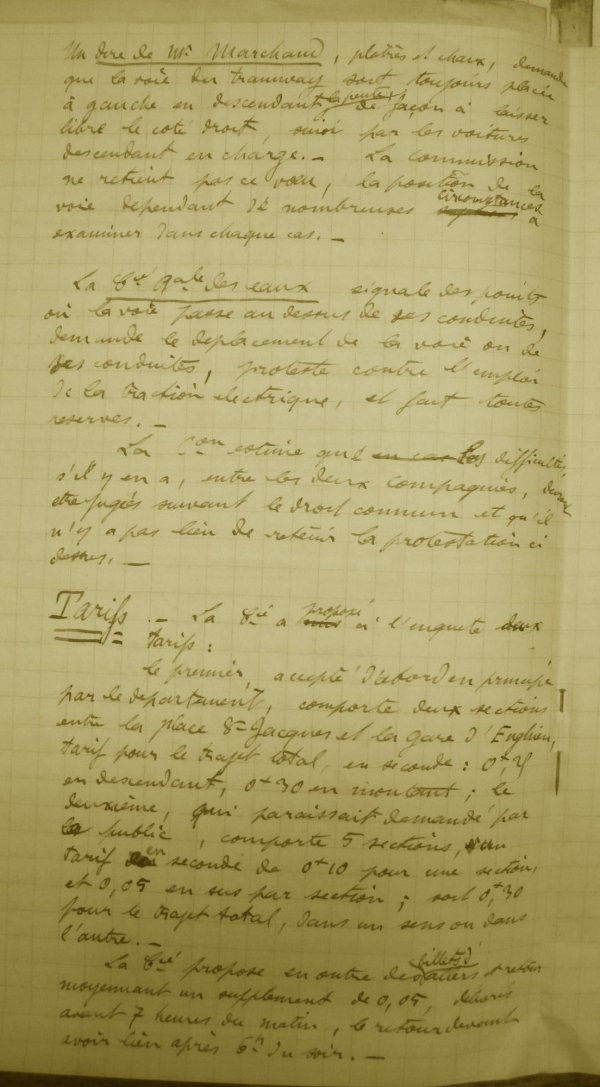 Un dire de Mr Marchand, plâtres et chaux, demande
que la voie du tramway soit toujours placée
à gauche en descendant la pente, de façon à laisser
libre le coté droit, suivi par les voitures
descendant en charge. — La commission
ne retient pas ce vœu, la position de la
voie dépendant de nombreuses circonstances à
examiner dans chaque cas. —
La Cie Gale des eaux signale des points
où la voie passe au dessus de ses conduites,
demande le déplacement de la voie ou de
ses conduites, proteste contre l'emploi
de la traction électrique, et fait toutes
reserves. —
La Con estime que en cas les difficultés,
s'il y en a, entre les deux compagnies, devront
etre jugés suivant le droit commun et qu'il
n'y a pas lieu de retenir la protestation ci
dessus. —
Tarifs. — La Cie a proposé à l'enquete deux
tarifs :
le premier, accepté d'abord en principe
par le departement, comporte deux sections
entre la place St Jacques et la gare d'Enghien,
tarif pour le trajet total, en seconde : 0f,25
en descendant, 0f30 en montant ; le
deuxième, qui paraissait demandé par
le public, comporte 5 sections, un
tarif en seconde de 0f10 pour une section,
et 0,05 en sus par section ; soit 0f,30
pour le trajet total, dans un sens ou dans
l'autre. —
La Cie propose en outre des billets d'aller et retour
moyennant un supplement de 0,05, délivrés
avant 7 heures du matin, le retour devant
avoir lieu après 6h du soir. —